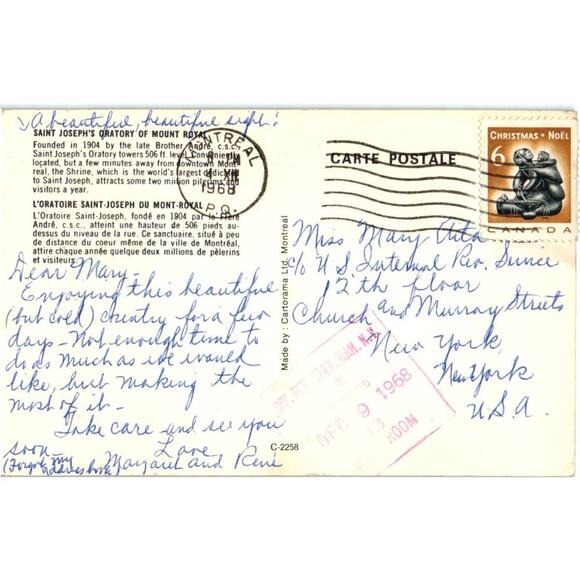 A beautiful, beautiful sight!
SAINT JOSEPH'S ORATORY OF MOUNT ROYAL
Founded in 1904 by the late Brother André, c.s.c.,
Saint Joseph's Oratory towers 506 ft. level. Conveniently
located, but a few minutes away from downtown Mont-
real, the Shrine, which is the world's largest dedicated
to Saint Joseph, attracts some two million pilgrims and
visitors a year.
L'ORATOIRE SAINT-JOSEPH DU MONT-ROYAL
L'Oratoire Saint-Joseph, fondé en 1904 par le frère
André, c.s.c., atteint une hauteur de 506 pieds au-
dessus du niveau de la rue. Ce sanctuaire, situé à peu
de distance du coeur même de la ville de Montréal,
attire chaque année quelque deux millions de pèlerins
et visiteurs.
Dear Mary-
Enjoying this beautiful
(but cold) country for a few
days - Not enough time to
do as much as we would
like, but making the
most of it -
Take care and see you
soon - Love
(Forgot my
address book) Margaret and René
MONTREAL
PM
XII
1968
P.Q.
CARTE POSTALE
CHRISTMAS • NOËL
6
CANADA
Miss Mary Aita
c/o U.S. Internal Rev. Service
12th floor
Church and Murray Streets
New York,
New York
U.S.A.
MAN. N.Y.
DEC 9 1968
13
ROOM
Made by: Cartorama Ltd. Montreal
C-2258